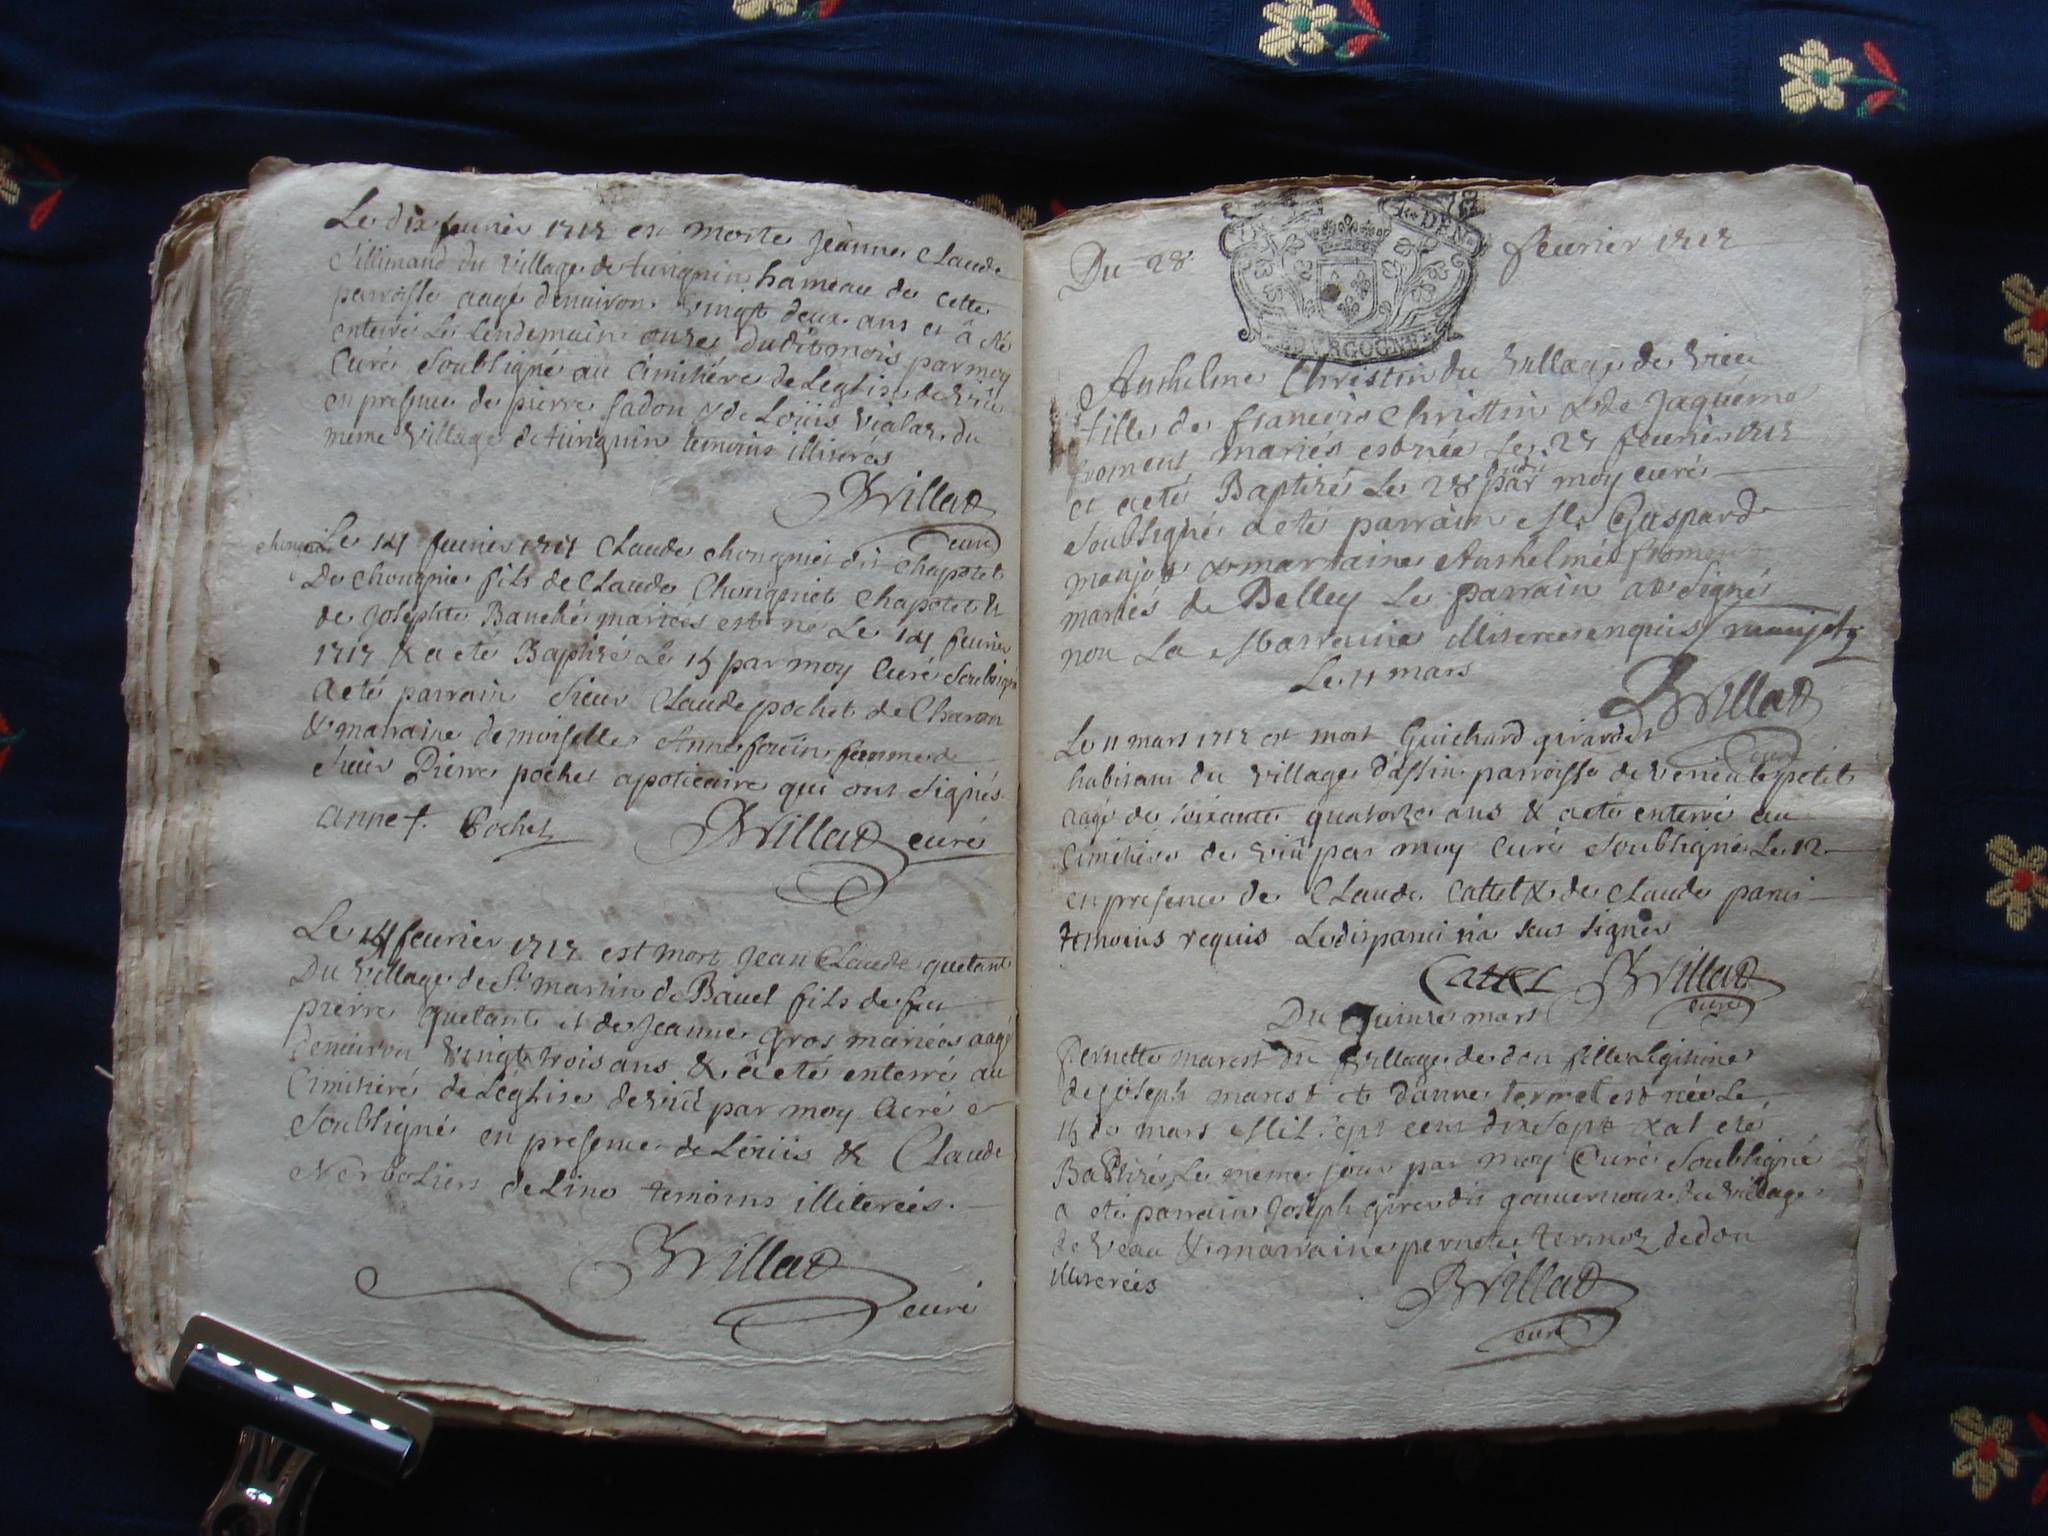 Le dix feurier 1717 est morte Jeanne Claude
du village de turignin hameau de cette
parroisse aagé denuiron vingt deux ans et â été
enterré Le Lendemain onze dudit mois par moy
Curé Soubsigné au Cimitiére de Leglise de viû
en presence de pierre fadon & de Loüis vialaz du
meme village de turignin temoins illiterés
JVillaz
curé
Le 14 feurier 1717 Claude chongnier dit Chapotet
De chongnie fils de Claude Chongniet Chapotet &
de Josephte Banché mariées est né Le 14 feurier
1717 & a eté Baptizé Le 15 par moy Curé Soubsigné
a eté parrain Sieur Claude pochet de Charon
& marraine demoiselle Anne femme de
Sieur Pierre pochet apoticaire qui ont Signés
anne f. Pochet JVillaz curé
Le 14 feurier 1717 est mort Jean Claude quetant
Du village de St martin de Bauel fils de feu
pierre quetant et de Jeanne gros mariées aagé
denuiron vingt trois ans & â eté enterré au
Cimitiéré de Léglise de viû par moy Curé
Soubsigné en presence de Loüis & Claude
Nerboliers de Lino temoins illiterées.
JVillaz
curé
DE
BOURGOGNE
Du 28 feurier 1717
Anthelme Christin du village de vieu
fille de francois Christin & de Jaquéme
froment mariés est née Le 27 feurier 1717
et a eté Baptizé Le 28 dudit par moy curé
Soubsigné a eté parrain Mr Gaspard
monjot & marraine Anthelme froment
mariés de Belley Le parrain a Signé
non La Marraine illiteree enquis monjot
Le 11 mars
JVillaz
curé
Le 11 mars 1717 est mort Guichard girardet
habitant du village d'assin parroisse de verieu Le petit
aagé de soixante quatorze ans & a eté enterré au
Cimitiére de viû par moy Curé Soubsigné Le 12
en presence de Claude Cattet & de Claude panis
temoins requis Ledit panis n'a sçeu signer
Cattet JVillaz
curé
Du Quinze mars
Pernette marest du village de don fille Legitime
de joseph marest et d'anne termet est née Le
15 de mars Mil sept cent dix Sept & a eté
Baptizé Le meme jour par moy Curé Soubsigné
a eté parrain Joseph dit gouuernoux du village
de veau & marraine pernete termoz de don
illiterées
JVillaz
curé